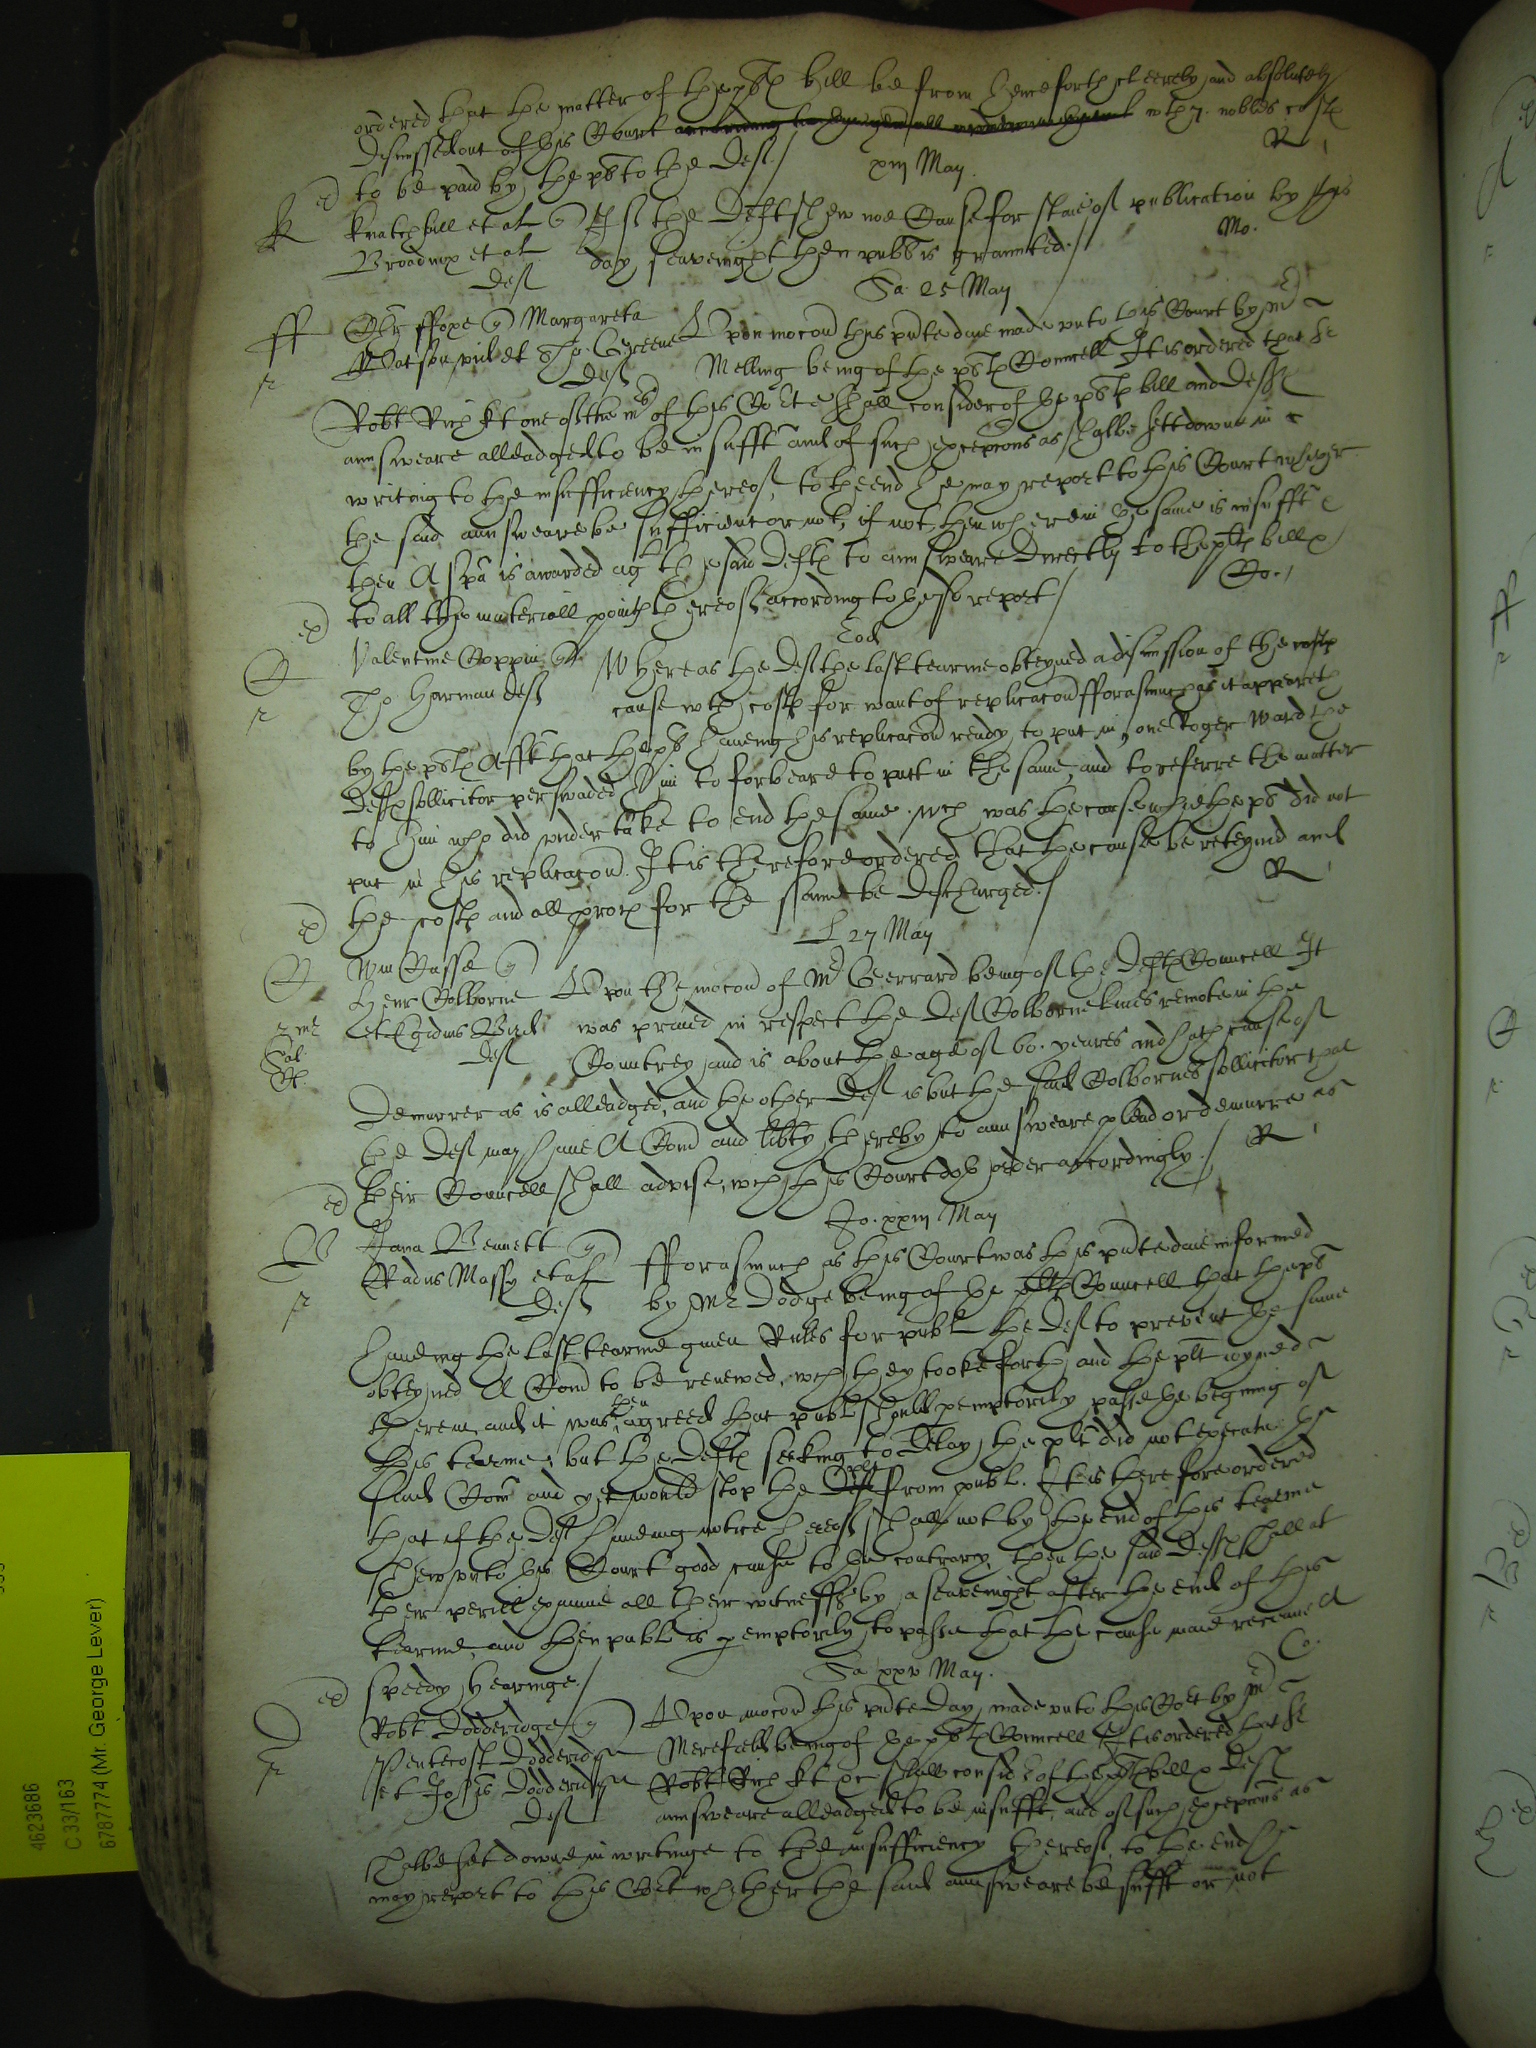 ordered that the matter of the plts bill be from henceforth cleerely and absolutely
dismissed out of this Court wth 7. nobles costs
to be paid by the plt to the deft./ R
xiij May.
K Knatchbull et al If the defts shew noe Cause for staie of publication by this
Broadnix et al day seavenight then publ is graunted./ Mo.
deft
Sa 25 May
ff Chr ffoxe Margareta
Watson vid et Tho Greene Upon mocon this pnte daie made unto this Court by Mr
deft Melling being of the plts Councell It is ordered that Sr
Robt Rich kt one of the mrs of this Corte shall consider of the plts bill and defts
aunsweare alleadged to be insufft and of such excepcons as shalbe sett downe in
writing to the insufficiency thereof, to the end he may report to this Court whether
the said aunsweare be sufficient or not, if not, then wherein the same is insufft
then A spa is awarded agt the said defts to aunsweare directly to the plts bill
to all the materiall points thereof according to the sd report/ Co.
Eod
Valentine Coppin Whereas the deft the last tearme obteyned a dismission of the
Tho Harman deft cause wth costs for want of replicacon fforasmuch as it appeareth
by the plts Afft that the plt haveing his replicacon ready to put in, one Roger Ward the
defts sollicitor perswaded him to forbeare to putt in the same, and to referre the matter
to him who did undertake to end the same. wch was the cause whie the plt did not
put in his replicacon. It is therefore ordered that the cause be reteyned and
the costs and all proces for the same be discharged./ R
L 27 May
Wm Casse
Henr Colborne Upon the mocon of Mr Gerrard being of the defts Councell It
et Egidius Bird was praied in respect the deft Colborne lives remote in the
deft Countrey and is about the age of 60. yeares and hath cause of
Demurrer as is alleadged, and the other deft is but the said Colbornes sollicitor that
the deft may have A Com and libty thereby to aunsweare plead or demurre as
their Councell shall advise, wch this Court doth order accordingly./ R
Jo. xxiij May
Jana Bennett fforasmuch as this Court was this pnte daie informed
Radus Massy et al by Mr Dodge being of the plts Councell that the plt
deft
haveing the last tearme given Rules for publ the deft to prevent the same
obteyned A Com to be renewed, wch they tooke forth and the plt ioyned
therein and it was then agreed that publ should pemptorily passe the begining of
this tearme, but the defts seeking to delay the plt did not execute the
said Com and yet would stop the plt from publ. It is therefore ordered
that if the deft haveing notice hereof shall not by the end of this tearme
shew unto this Court good cause to the contrary, then the said defts shall at
their perill examine all their witnesses by a seavenight after the end of this
tearme, and then publ is pemptorily to passe that the cause maie receave A
speedy hearinge./ Co.
Sa xxv May.
Robt. Dodderidge Upon mocon this pnte day made unto this Cort by Mr
Pentecost Dodderidge Merefield being of the plts Councell It is ordered that Sr
et Johis Dodderidge Robt Rich kt shall consider of the plts bill defts
deft aunsweare alleadged to be insufft, and of such excepcons as
shalbe set downe in writinge to the insufficiency thereof, to the end he
may report to this Cort whether the said aunsweare be sufft or not
4623686
C 33/163
6787774 (Mr. George Lever)